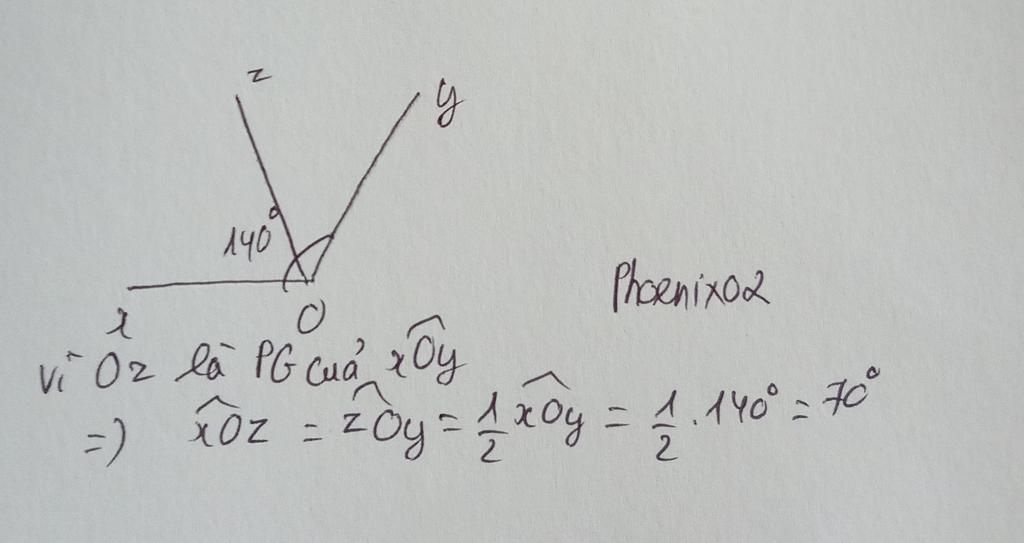 z
y
140°
x
O
Phoenix02
Vì Oz là PG của xÔy
=) xÔz = zÔy = 1/2 xÔy = 1/2 . 140° = 70°